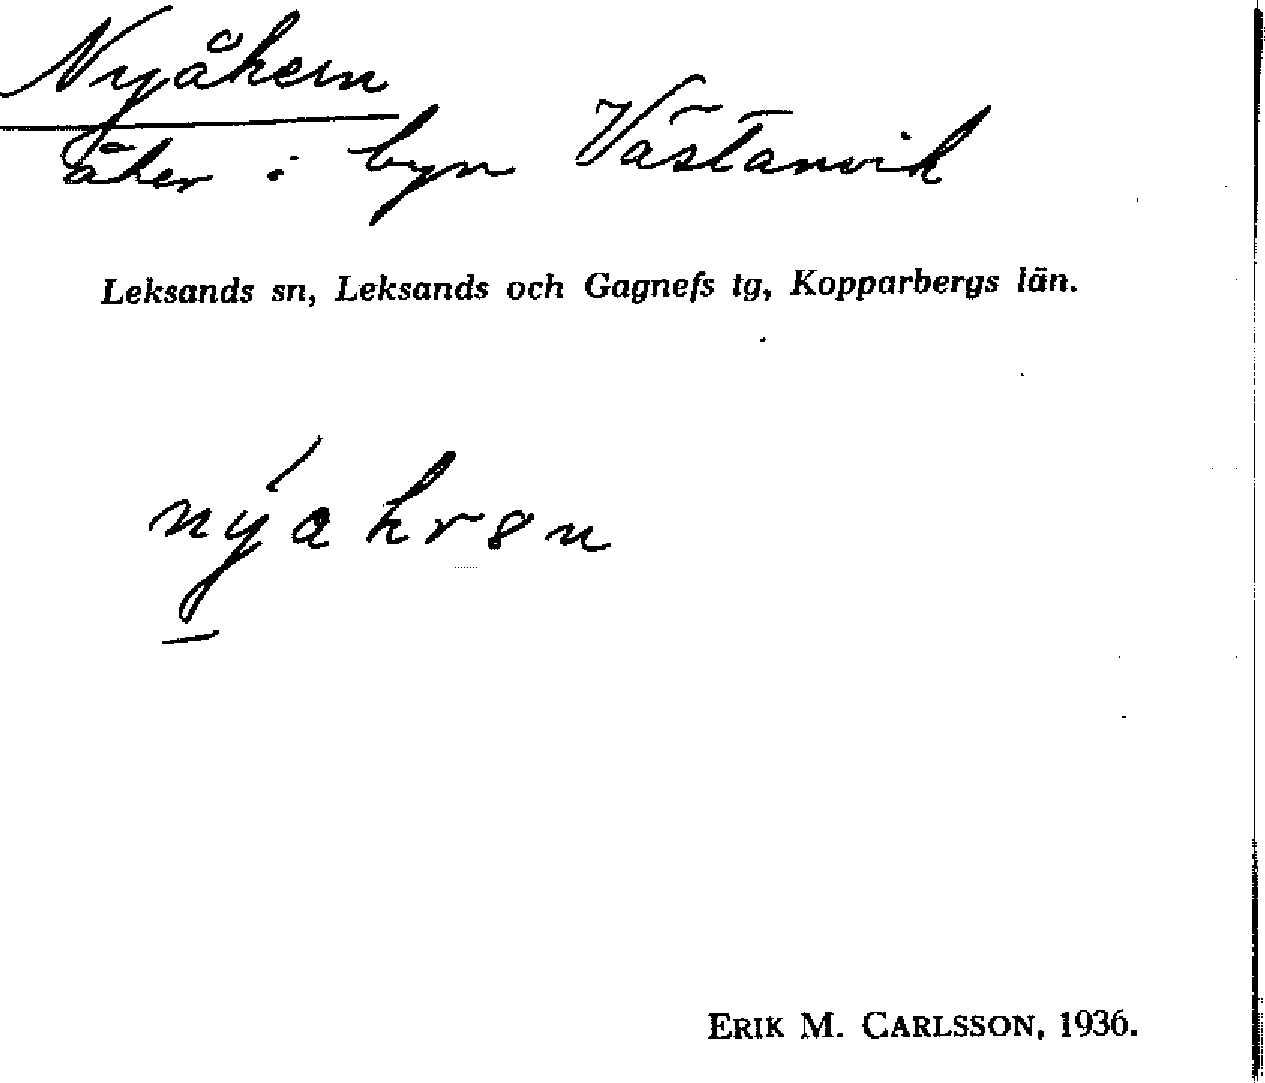 Nyåkern
åker i byn Västanvik
Leksands sn, Leksands och Gagnefs tg, Kopparbergs län.
nýakrən
ERIK M. CARLSSON, 1936.